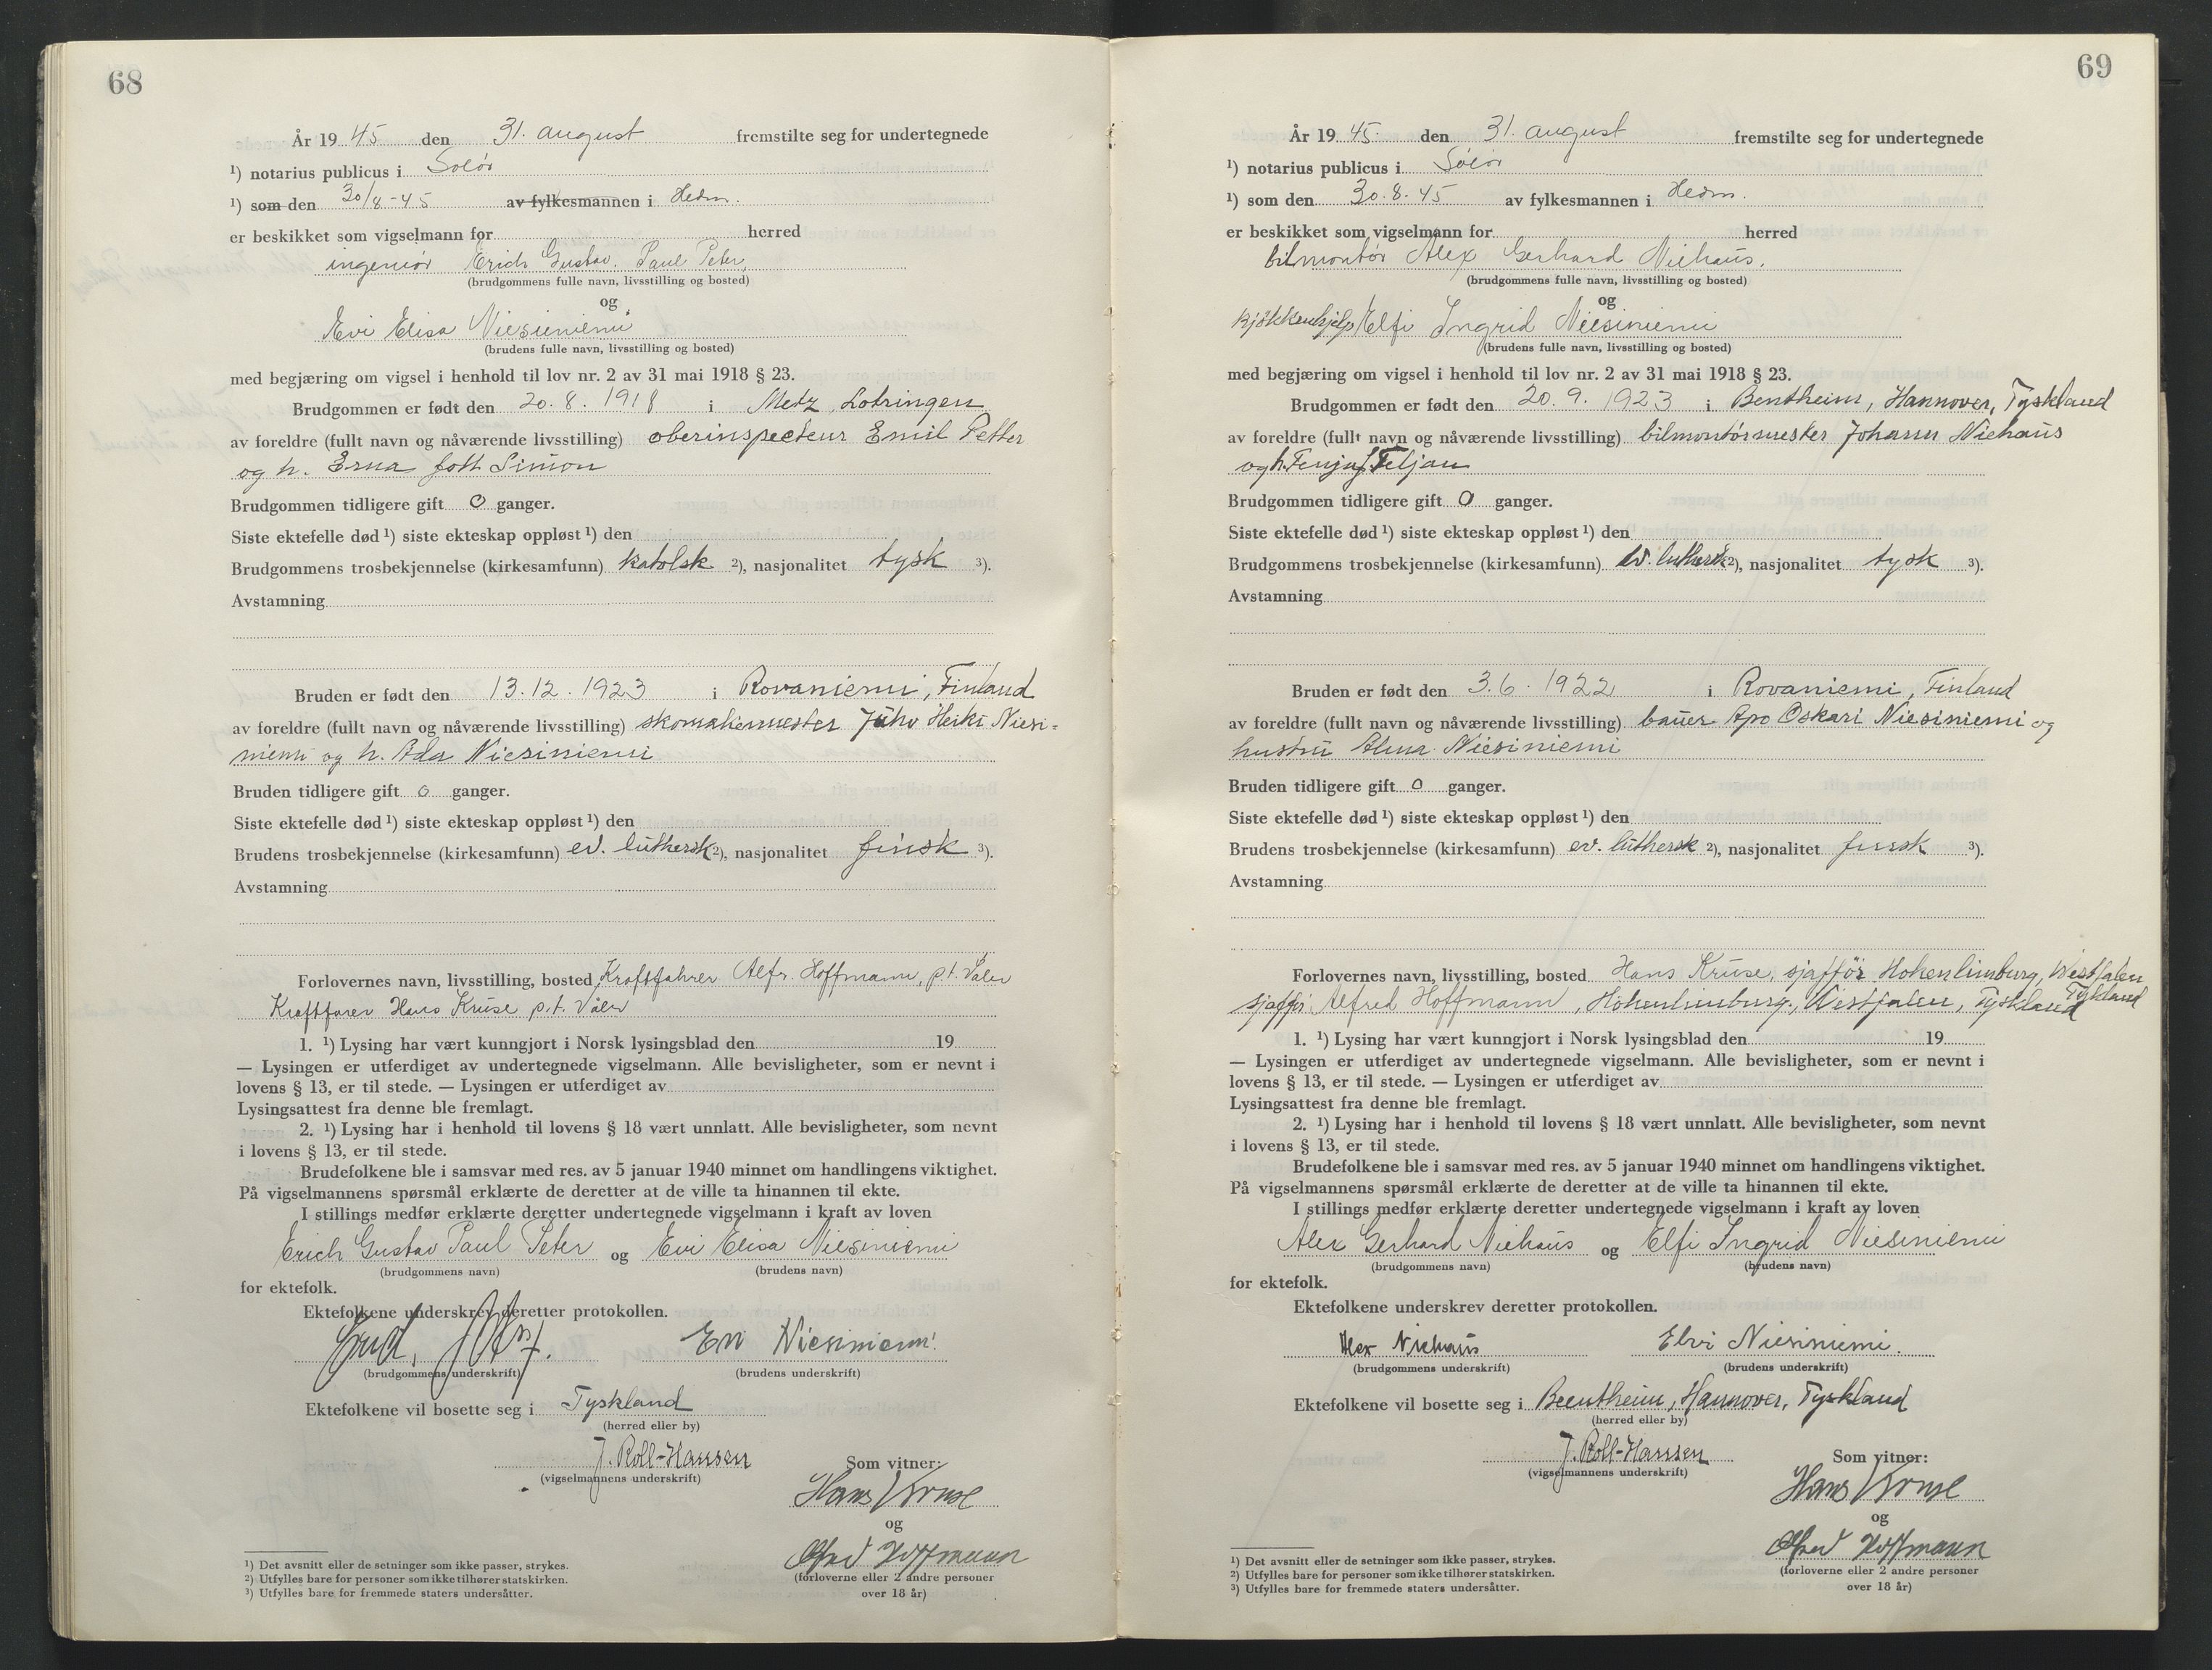 68
År 19 45 den 31. august fremstilte seg for undertegnede
¹) notarius publicus i Solør
¹) som den 30/8-45 av fylkesmannen i Hedm.
er beskikket som vigselmann for herred
ingeniør Erich Gustav Paul Peter,
(brudgommens fulle navn, livsstilling og bosted)
og
Evi Elisa Niesiniemi
(brudens fulle navn, livsstilling og bosted)
med begjæring om vigsel i henhold til lov nr. 2 av 31 mai 1918 § 23.
Brudgommen er født den 20. 8. 1918 i Metz, Lotringen
av foreldre (fullt navn og nåværende livsstilling) oberinspecteur Emil Petter
og h. Erna født Simon
Brudgommen tidligere gift 0 ganger.
Siste ektefelle død ¹) siste ekteskap oppløst ¹) den
Brudgommens trosbekjennelse (kirkesamfunn) katolsk ²), nasjonalitet tysk ³).
Avstamning
Bruden er født den 13. 12. 1923 i Rovaniemi, Finland
av foreldre (fullt navn og nåværende livsstilling) skomakermester Juho Heiki Niesi=
niemi og h. Ada Niesiniemi
Bruden tidligere gift 0 ganger.
Siste ektefelle død ¹) siste ekteskap oppløst ¹) den
Brudens trosbekjennelse (kirkesamfunn) ev. luthersk ²), nasjonalitet finsk ³).
Avstamning
Forlovernes navn, livsstilling, bosted Kraftfahrer Alfr. Hoffmann, p.t. Våler
Kraftfarer Hans Kruse p.t. Våler
1. ¹) Lysing har vært kunngjort i Norsk lysingsblad den 19
— Lysingen er utferdiget av undertegnede vigselmann. Alle bevisligheter, som er nevnt i
lovens § 13, er til stede. — Lysingen er utferdiget av
Lysingsattest fra denne ble fremlagt.
2. ¹) Lysing har i henhold til lovens § 18 vært unnlatt. Alle bevisligheter, som nevnt
i lovens § 13, er til stede.
Brudefolkene ble i samsvar med res. av 5 januar 1940 minnet om handlingens viktighet.
På vigselmannens spørsmål erklærte de deretter at de ville ta hinannen til ekte.
I stillings medfør erklærte deretter undertegnede vigselmann i kraft av loven
Erich Gustav Paul Peter og Evi Elisa Niesiniemi
(brudgommens navn) (brudens navn)
for ektefolk.
Ektefolkene underskrev deretter protokollen.
Evi Niesiniemi
(brudgommens underskrift) (brudens underskrift)
Ektefolkene vil bosette seg i Tyskland
(herred eller by)
J. Roll-Hansen
(vigselmannens underskrift)
Som vitner:
Hans Kruse
og
Alfred Hoffmann
(forloverne eller 2 andre personer
over 18 år)
¹) Det avsnitt eller de setninger som ikke passer, strykes.
²) Utfylles bare for personer som ikke tilhører statskirken.
³) Utfylles bare for fremmede staters undersåtter.
69
År 19 45. den 31. august fremstilte seg for undertegnede
¹) notarius publicus i Solør
¹) som den 30. 8. 45 av fylkesmannen i Hedm.
er beskikket som vigselmann for herred
bilmontør Alex Gerhard Niehaus.
(brudgommens fulle navn, livsstilling og bosted)
og
kjøkkenhjelp Elfi Ingrid Niesiniemi
(brudens fulle navn, livsstilling og bosted)
med begjæring om vigsel i henhold til lov nr. 2 av 31 mai 1918 § 23.
Brudgommen er født den 20. 9. 1923 i Bentheim, Hannover, Tyskland
av foreldre (fullt navn og nåværende livsstilling) bilmontørmester Johann Niehaus
og h. Feljan
Brudgommen tidligere gift 0 ganger.
Siste ektefelle død ¹) siste ekteskap oppløst ¹) den
Brudgommens trosbekjennelse (kirkesamfunn) ev. luthersk ²), nasjonalitet tysk ³).
Avstamning
Bruden er født den 3. 6. 1922 i Rovaniemi, Finland
av foreldre (fullt navn og nåværende livsstilling) bauer Apo Oskari Niesiniemi og
hustru Alma Niesiniemi
Bruden tidligere gift 0 ganger.
Siste ektefelle død ¹) siste ekteskap oppløst ¹) den
Brudens trosbekjennelse (kirkesamfunn) ev. luthersk ²), nasjonalitet finsk ³).
Avstamning
Forlovernes navn, livsstilling, bosted Hans Kruse, sjafför Hohenlimburg, Westfalen
Tyskland
sjaffør Alfred Hoffmann, Hohenlimburg, Westfalen, Tyskland
1. ¹) Lysing har vært kunngjort i Norsk lysingsblad den 19
— Lysingen er utferdiget av undertegnede vigselmann. Alle bevisligheter, som er nevnt i
lovens § 13, er til stede. — Lysingen er utferdiget av
Lysingsattest fra denne ble fremlagt.
2. ¹) Lysing har i henhold til lovens § 18 vært unnlatt. Alle bevisligheter, som nevnt
i lovens § 13, er til stede.
Brudefolkene ble i samsvar med res. av 5 januar 1940 minnet om handlingens viktighet.
På vigselmannens spørsmål erklærte de deretter at de ville ta hinannen til ekte.
I stillings medfør erklærte deretter undertegnede vigselmann i kraft av loven
Alex Gerhard Niehaus og Elfi Ingrid Niesiniemi
(brudgommens navn) (brudens navn)
for ektefolk.
Ektefolkene underskrev deretter protokollen.
Alex Niehaus Elvi Niesiniemi.
(brudgommens underskrift) (brudens underskrift)
Ektefolkene vil bosette seg i Beentheim, Hannover, Tyskland
(herred eller by)
J. Roll-Hansen
(vigselmannens underskrift)
Som vitner:
Hans Kruse
og
Alfred Hoffmann
(forloverne eller 2 andre personer
over 18 år)
¹) Det avsnitt eller de setninger som ikke passer, strykes.
²) Utfylles bare for personer som ikke tilhører statskirken.
³) Utfylles bare for fremmede staters undersåtter.